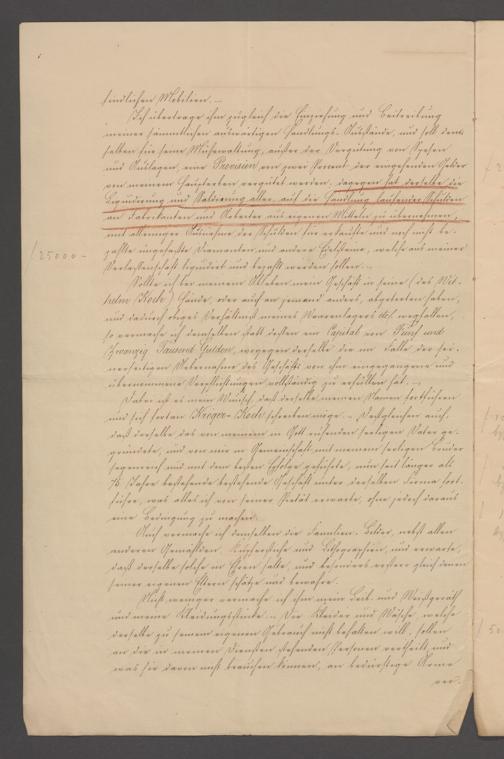 findlichen Mobilien. –
Ich übertrage ihm zugleich die Einziehung und Beitreibung
meiner sämmtlichen auswärtigen Handlungs-Ausstände, und soll dem-
selben für seine Mühewaltung, außer der Vergütung von Spesen
und Auslagen, eine Provision von zwei Procent der eingehenden Gelder
von meinen Haupterben vergütet werden, dagegen hat derselbe die
Liquidirung und Saldirung aller auf der Handlung lastenden Schulden
an Fabrikanten und Arbeiter aus eigenen Mitteln zu übernehmen,
mit alleiniger Ausnahme der Schulden für erkaufte und noch nicht be-
zahlte ungefaßte Diamanten und andere Edelsteine, welche aus meiner
Verlassenschaft liquidirt und bezahlt werden sollen. –
/25000 –
Sollte ich bei meinem Ableben mein Geschäft in seine (des Wil-
helm Koch) Hände, oder auch an jemand anders, abgetreten haben,
und dadurch obiges Verhältniß meines Waarenlagers etc. wegfallen,
so vermache ich demselben statt dessen ein Capital von Fünf und
Zwanzig Tausend Gulden, wogegen derselbe die im Falle der sei-
nerseitigen Uebernahme des Geschäfts von ihm eingegangene und
übernommene Verpflichtungen vollständig zu erfüllen hat. –
Dabei ist es mein Wunsch, daß derselbe meinen Namen fortführen
und sich fortan Krieger-Koch schreiben möge. – Desgleichen auch,
daß derselbe das von meinem in Gott ruhenden seeligen Vater ge-
gründete, und von mir in Gemeinschaft mit meinem seeligen Bruder
segenreich und mit dem besten Erfolge geführte, nun seit länger als
75 Jahre bestehende bestehende Geschäft unter derselben Firma fort-
führe, was alles ich von seiner Pietät erwarte, ohne jedoch daraus
eine Bedingung zu machen.
Auch vermache ich demselben die Familien-Bilder, nebst allen
anderen Gemählden, Kupferstiche und Lithographien, und erwarte,
daß derselbe solche in Ehren halte, und besonders erstere gleich denen
seiner eigenen Eltern schätze und bewahre.
Nicht weniger vermache ich ihm mein Leib- und Weißgeräth
und meine Kleidungsstücke. – Die Kleider und Wäsche, welche
derselbe zu seinem eigenen Gebrauch nicht behalten will, sollen
an die in meinen Diensten stehenden Personen vertheilt, und
was sie davon nicht brauchen können, an bedürftige Arme
ver-